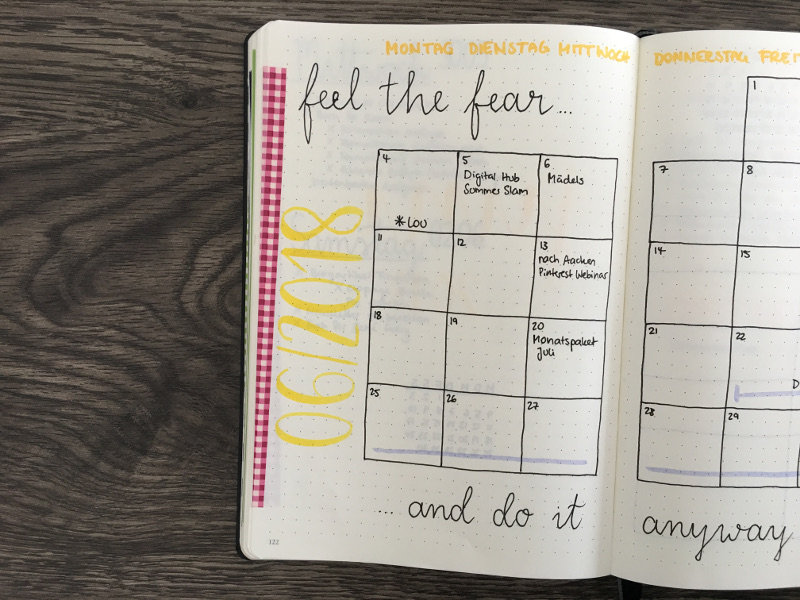 MONTAG DIENSTAG MITTWOCH DONNERSTAG FREIT
feel the fear...
06/2018
1
4 5 6 7 8
Digital Hub
Sommer Slam
Mädels
*LOU
11 12 13 14 15
nach Aachen
Pinterest Webinar
18 19 20 21 22
Monatspaket
Juli
D
25 26 27 28 29
... and do it anyway
122